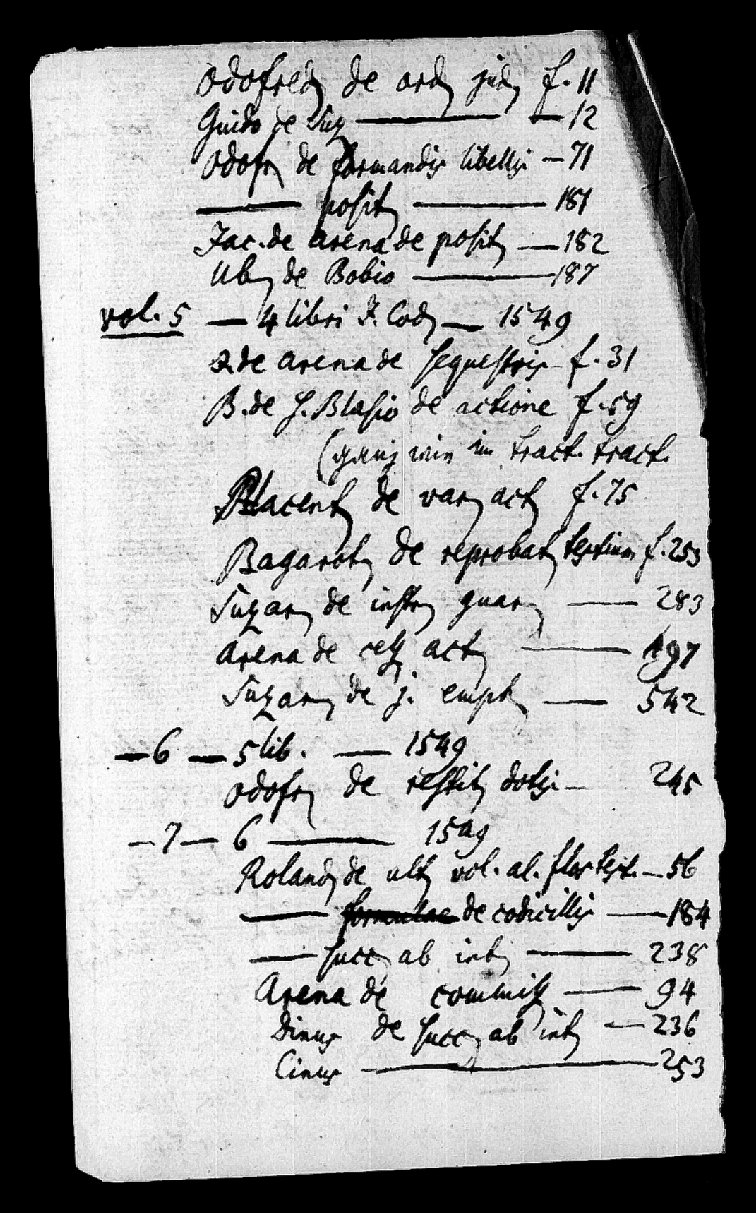 Odofred de ord jud f. 11
Guido de Suz — — 12
Odofr de formandis libellis — 71
— posit — 181
Jac. de Arena de posit — 182
Ub de Bobio — 187
vol. 5 — 4 libri J. Cod — 1549
J. de Arena de sequestris f. 31
B. de S. Blasio de actione f. 59
(ganz wie im tract. tract.
Placent de var act f. 75
Bagarot de reprobat testium f. 253
Suzar de instr guar — 283
Arena de cess act — 197
Suzar de j. empt — 542
— 6 — 5 lib. — 1549
Odofr de restit dotis — 245
— 7 — 6 — 1549
Roland de ult vol. al. flos test. — 56
— de codicillis — 184
— succ ab int — 238
Arena de commiss — 94
Dinus de succ ab int — 236
Cinus — 253